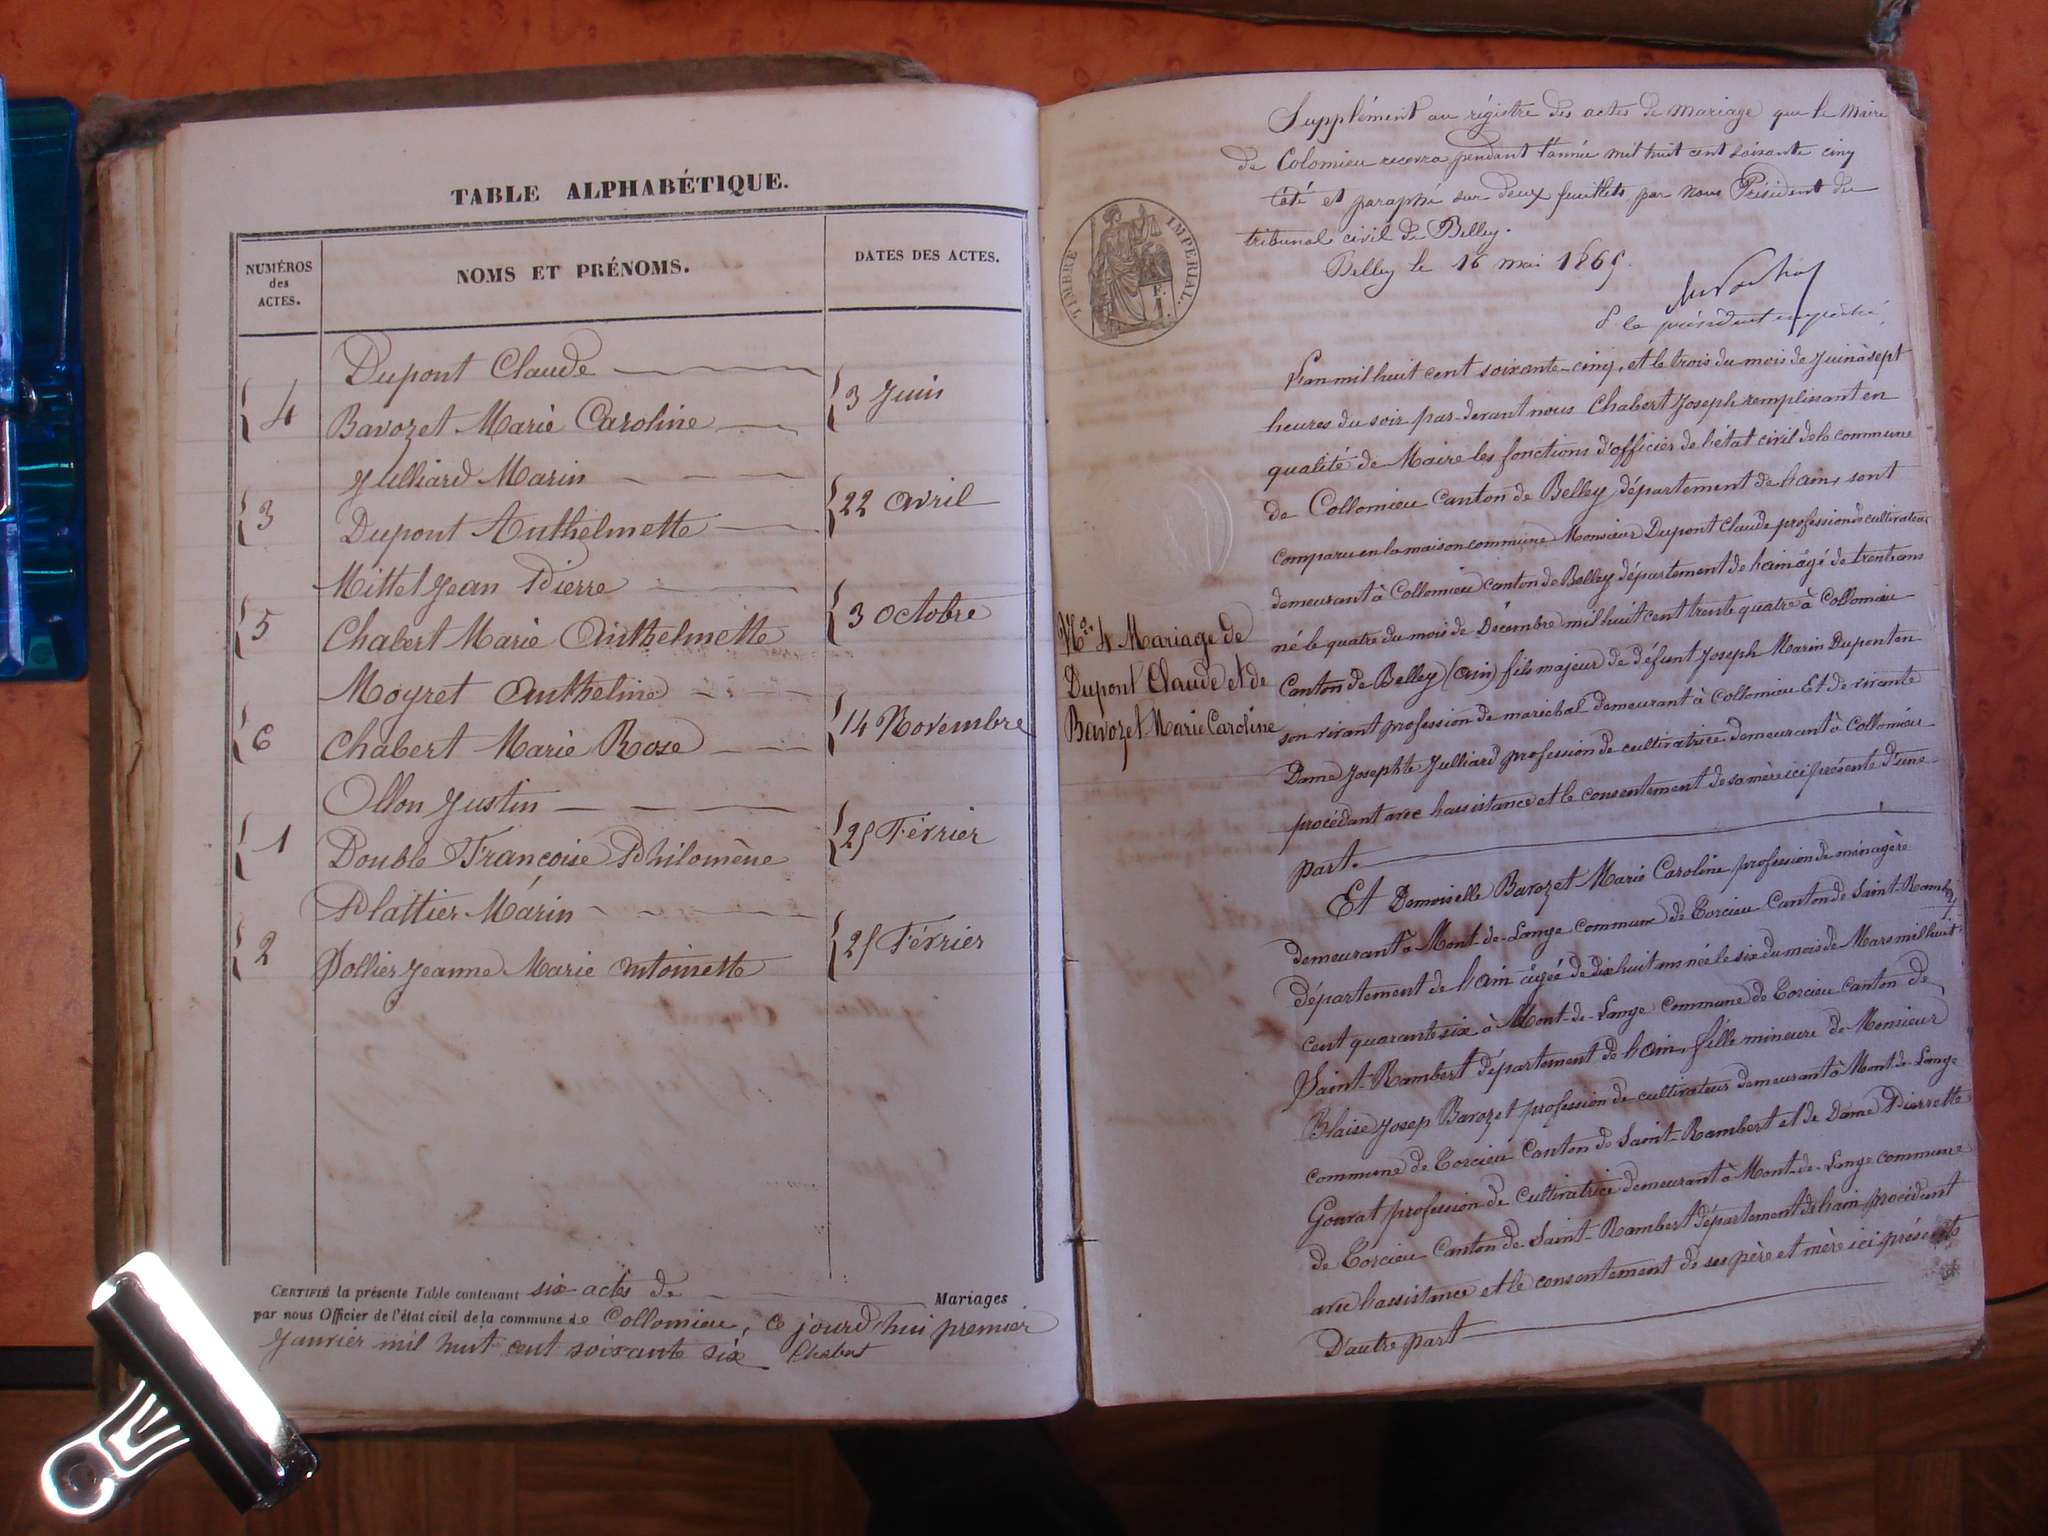 TABLE ALPHABÉTIQUE.
NUMÉROS des ACTES.
NOMS ET PRÉNOMS.
DATES DES ACTES.
Dupont Claude
4 3 Juin
Bavozet Marie Caroline
Julliard Marin
3 22 avril
Dupont Anthelmette
Mittel Jean Pierre
5 3 Octobre
Chabert Marie Anthelmette
Moyret Anthelme
6 14 Novembre
Chabert Marie Rose
Ollon Justin
1 25 Février
Double Françoise Philomène
Plattier Marin
2 25 Février
Pollier Jeanne Marie Antoinette
CERTIFIÉ la présente Table contenant six actes de Mariages
par nous Officier de l'état civil de la commune de Collomieu, ce jourd'hui premier
Janvier mil huit cent soixante six Chabert
Supplément au régistre des actes de mariage que le Maire
de Colomieu recevra pendant l'année mil huit cent soixante cinq
Coté et paraphé sur deux feuillets par Nous Président du
tribunal civil de Belley.
Belley le 16 mai 1865.
P. le président empêché
TIMBRE IMPERIAL.
1 F.
L'an mil huit cent soixante-cinq, et le trois du mois de Juin à sept
heures du soir par-devant nous Chabert Joseph remplissant en
qualité de Maire les fonctions d'officier de l'état civil de la commune
de Collomieu Canton de Belley département de l'ain, sont
comparu en la maison commune Monsieur Dupont Claude profession de cultivateur
demeurant à Collomieu canton de Belley département de l'ain âgé de trente ans
né le quatre du mois de Décembre mil huit cent trente quatre à Collomieu
Canton de Belley (Ain) fils majeur de défunt Joseph Marin Dupont en
son vivant profession de maréchal demeurant à Collomieu Et de vivante
Dame Josephte Julliard profession de cultivatrice demeurant à Collomieu
procédant avec l'assistance et le consentement de sa mère ici présente D'une
part.
N° 4 Mariage de
Dupont Claude et de
Bavozet Marie Caroline
Et Demoiselle Bavozet Marie Caroline profession de ménagère
demeurant à Mont-de-Lange commune de Torcieu Canton de Saint-Rambert
département de l'ain âgée de dix huit ans née le six du mois de Mars mil huit
cent quarante six à Mont-de-Lange commune de Torcieu canton de
Saint-Rambert département de l'ain, fille mineure de Monsieur
Blaise Josep Bavozet profession de cultivateur demeurant à Mont-de-Lange
commune de Torcieu Canton de Saint-Rambert et de Dame Pierrette
Gonrat profession de cultivatrice demeurant à Mont-de-Lange commune
de Torcieu Canton de Saint-Rambert département de l'ain procédant
avec l'assistance et le consentement de ses père et mère ici présents
D'autre part